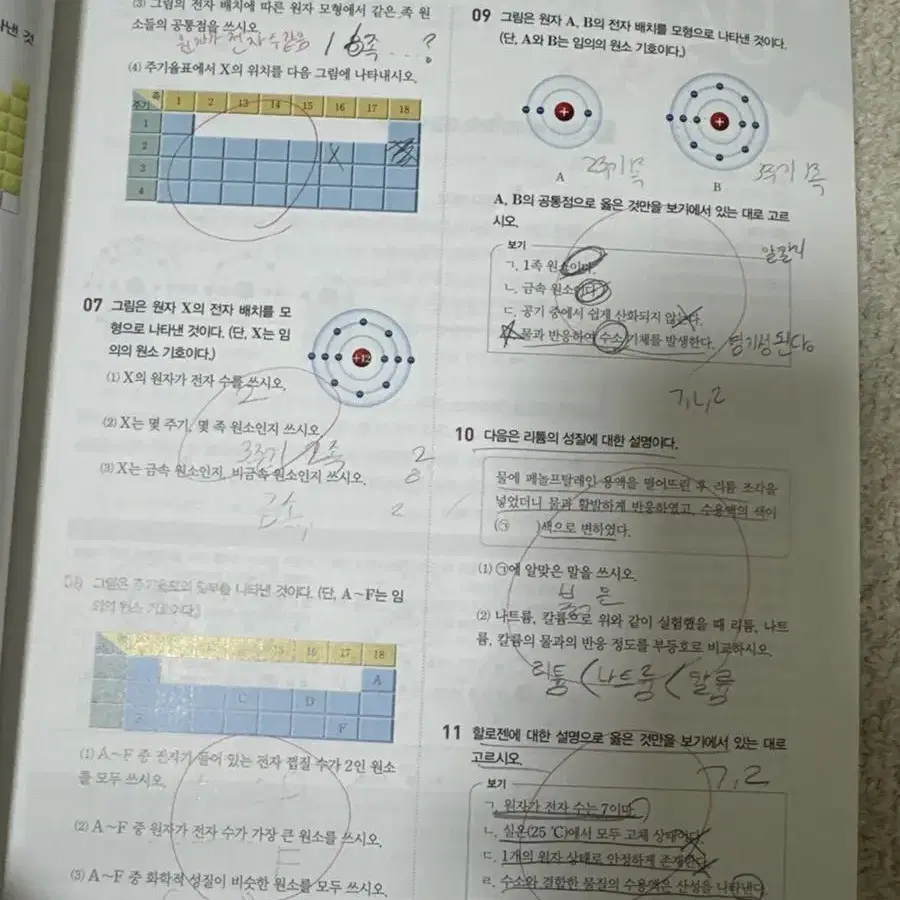 (3) 그림의 전자 배치에 따른 원자 모형에서 같은 족 원
소들의 공통점을 쓰시오.
원자가 전자 수 같음 16족...?
(4) 주기율표에서 X의 위치를 다음 그림에 나타내시오.
족
주기 1 2 13 14 15 16 17 18
1
2 X
3
4
07 그림은 원자 X의 전자 배치를 모
형으로 나타낸 것이다. (단, X는 임
의의 원소 기호이다.)
+12
(1) X의 원자가 전자 수를 쓰시오.
2
(2) X는 몇 주기, 몇 족 원소인지 쓰시오.
3주기 2족
2
8
2
(3) X는 금속 원소인지, 비금속 원소인지 쓰시오.
금속
08 그림은 주기율표의 일부를 나타낸 것이다. (단, A~F는 임
의의 원소 기호이다.)
15 16 17 18
A
C D
F
(1) A~F 중 전자가 들어 있는 전자 껍질 수가 2인 원소
를 모두 쓰시오.
(2) A~F 중 원자가 전자 수가 가장 큰 원소를 쓰시오.
F
(3) A~F 중 화학적 성질이 비슷한 원소를 모두 쓰시오.
09 그림은 원자 A, B의 전자 배치를 모형으로 나타낸 것이다.
(단, A와 B는 임의의 원소 기호이다.)
+ +
A 2주기 1족
B 3주기 1족
A, B의 공통점으로 옳은 것만을 보기에서 있는 대로 고르
시오.
알칼리
보기
ㄱ. 1족 원소이다.
ㄴ. 금속 원소이다.
ㄷ. 공기 중에서 쉽게 산화되지 않는다.
ㄹ. 물과 반응하여 수소 기체를 발생한다.
ㄱ, ㄴ, ㄹ
10 다음은 리튬의 성질에 대한 설명이다.
물에 페놀프탈레인 용액을 떨어뜨린 후 리튬 조각을
넣었더니 물과 활발하게 반응하였고, 수용액의 색이
(㉠ )색으로 변하였다.
(1) ㉠에 알맞은 말을 쓰시오.
붉은
(2) 나트륨, 칼륨으로 위와 같이 실험했을 때 리튬, 나트
륨, 칼륨의 물과의 반응 정도를 부등호로 비교하시오.
리튬 < 나트륨 < 칼륨
11 할로젠에 대한 설명으로 옳은 것만을 보기에서 있는 대로
고르시오.
ㄱ, ㄹ
보기
ㄱ. 원자가 전자 수는 7이다.
ㄴ. 실온(25 ℃)에서 모두 고체 상태이다.
ㄷ. 1개의 원자 상태로 안정하게 존재한다.
ㄹ. 수소와 결합한 물질의 수용액은 산성을 나타낸다.